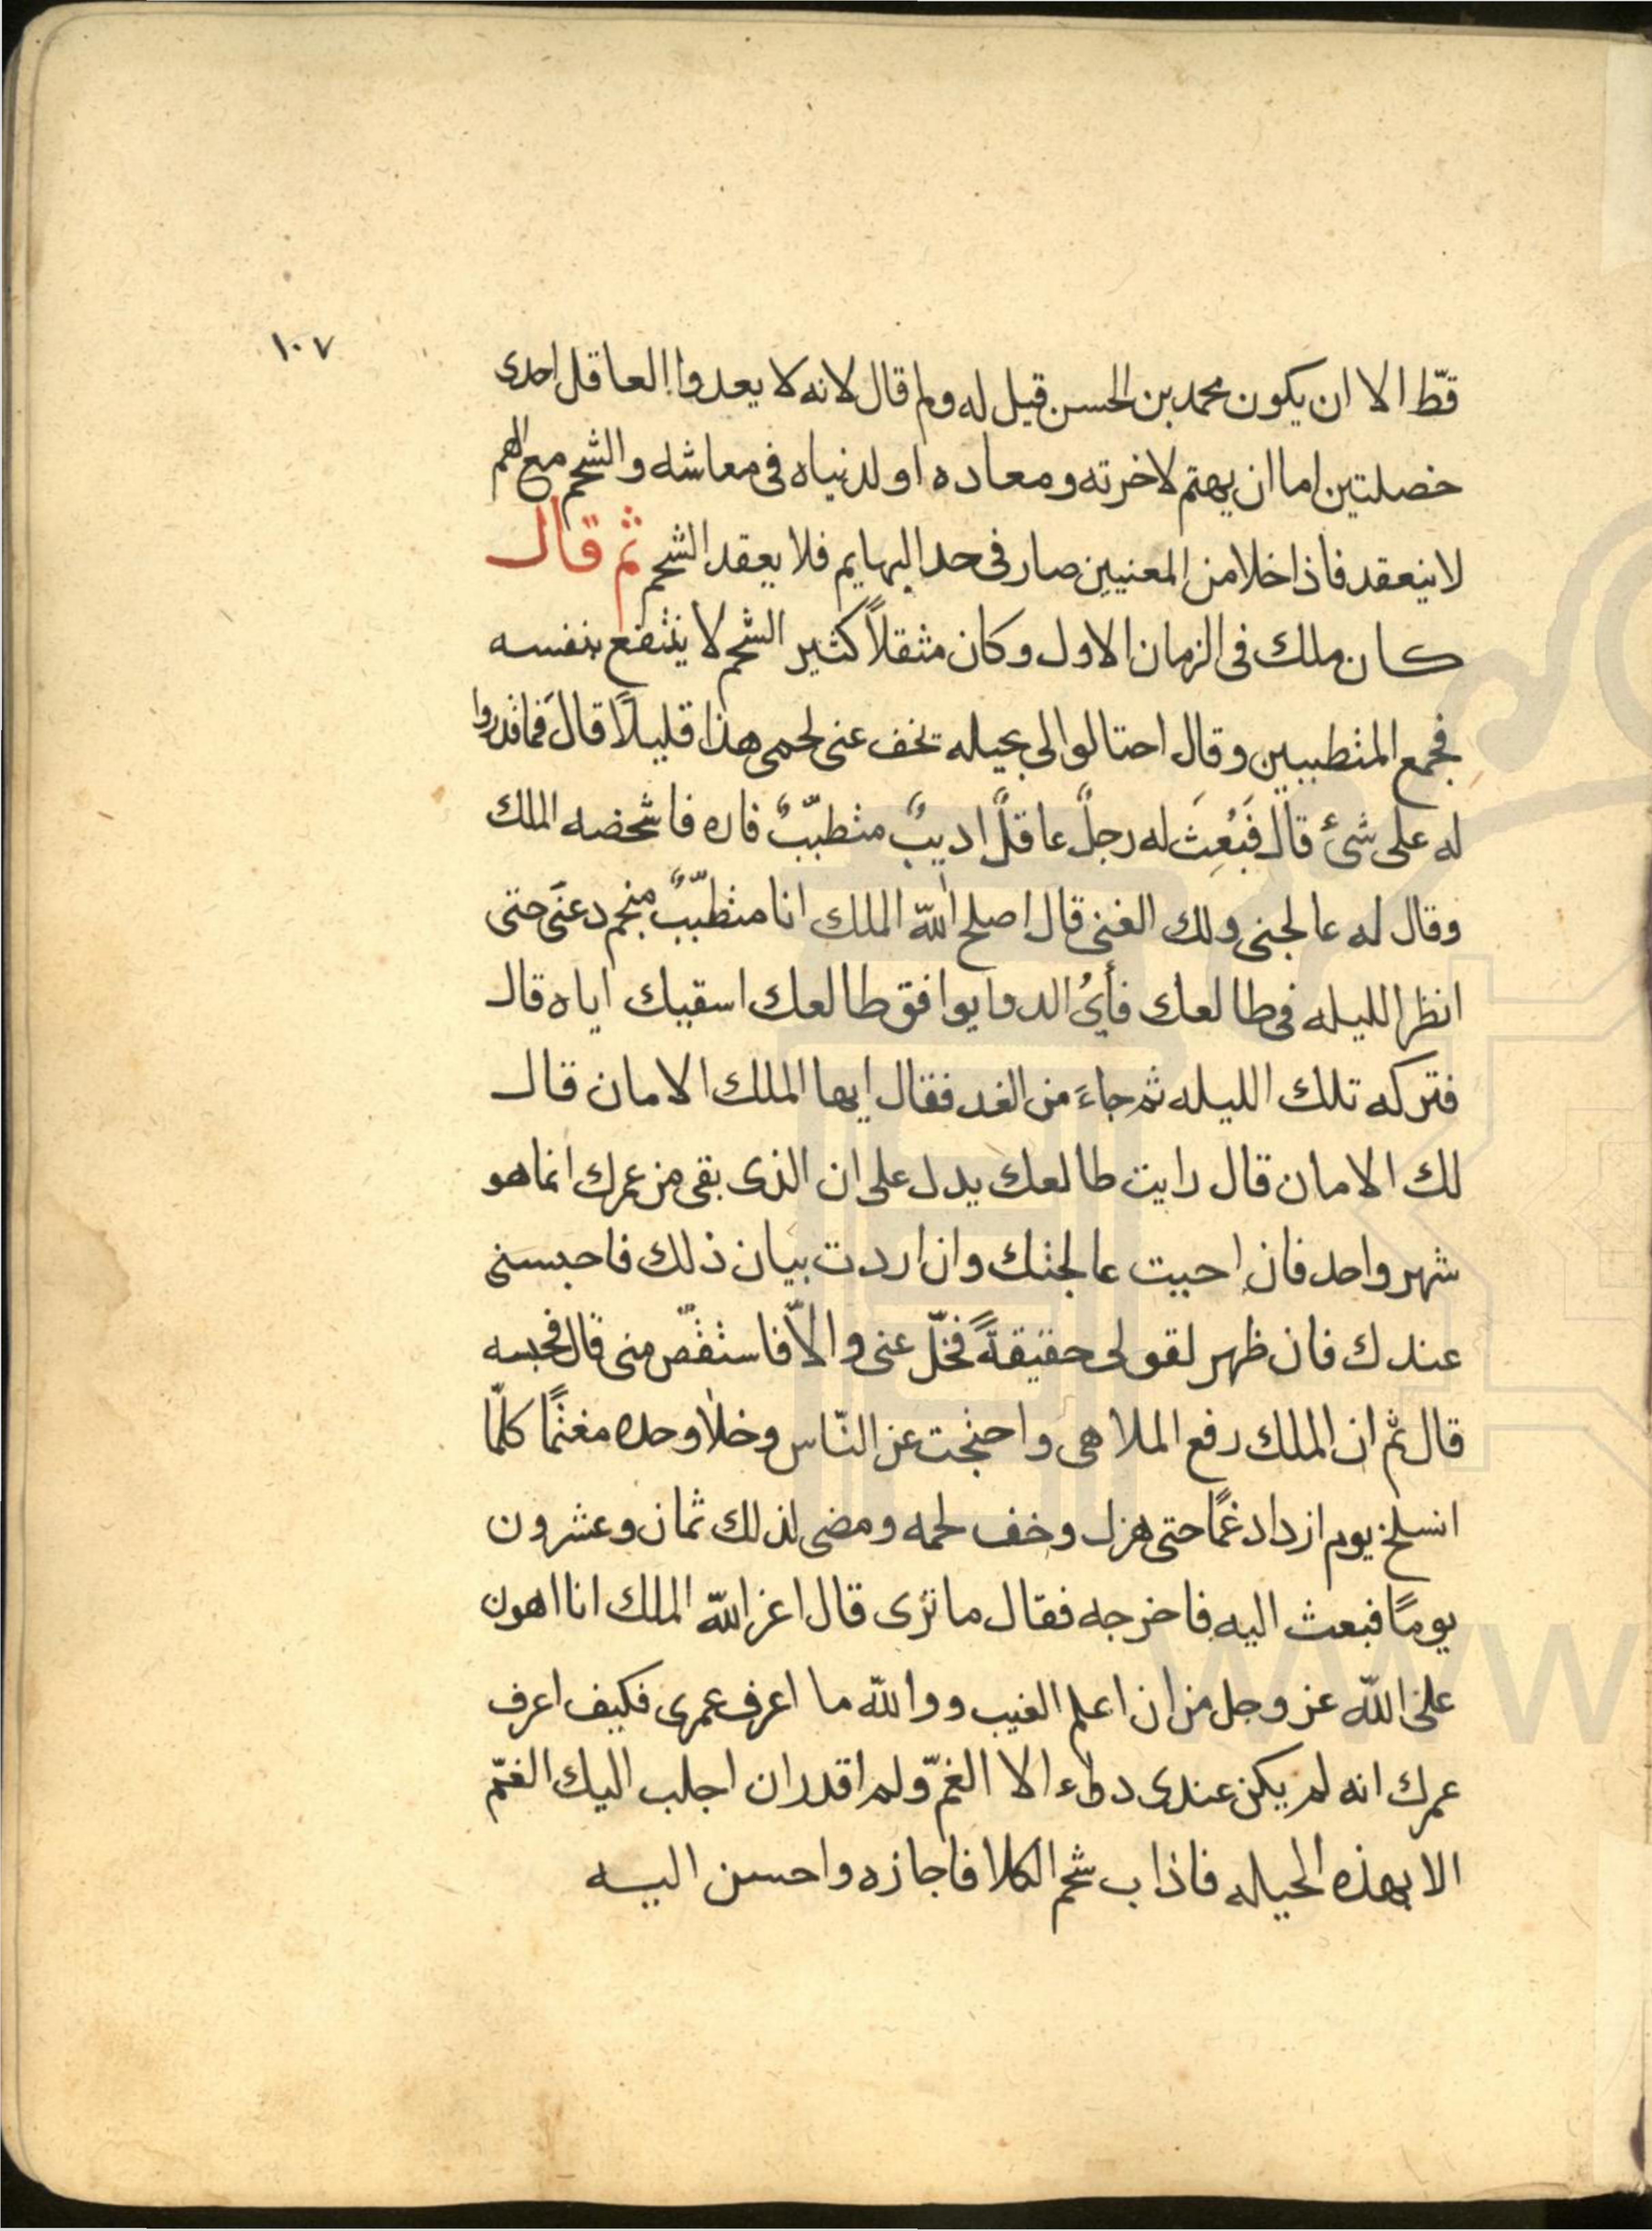 ١٠٧
قطّ الا ان يكون محمد بن الحسن قيل له ولم قال لانه لا يعدوا العاقل احدى
خصلتين اما ان يهتم لاخرته ومعاده او لدنياه فى معاشه والشحم مع الهم
لا ينعقد فاذا خلا من المعنيين صار فى حد البهايم فلا يعقد الشحم ثم قال
كان ملك فى الزمان الاول وكان مثقلاً كثير الشحم لا ينتفع بنفسه
فجمع المتطببين وقال احتالوا لى بحيله تخف عنى لحمى هذا قليلاً قالَ فما قدروا
له على شئ قال فَبُعِثَ له رجلٌ عاقلٌ اديبٌ متطبّبٌ فاره فاشخصه الملك
وقال له عالجنى ولك الغنى قال اصلح الله الملك انا متطبّبٌ منجم دعنى حتى
انظر الليله فى طالعك فأيُ الدوا يوافق طالعك اسقيك اياه قال
فتركه تلك الليله ثم جاءَ من الغد فقال ايها الملك الامان قال
لك الامان قال رايت طالعك يدل على ان الذى بقى من عمرك انما هو
شهر واحد فان احببت عالجتك وان اردت بيان ذلك فاحبسنى
عندك فان ظهر لقولى حقيقةً فخلّ عنى والاّ فاستقصّ منى قال فحبسه
قال ثم ان الملك رفع الملاهى واحتجت عن النّاس وخلا وحده مغتمًا كلّما
انسلخ يوم ازداد غمًا حتى هزل وخف لحمه ومضى لذلك ثمان وعشرون
يومًا فبعث اليه فاخرجه فقال ما ترى قال اعز الله الملك انا اهون
على الله عز وجل من ان اعلم الغيب ووالله ما اعرف عمرى فكيف اعرف
عمرك انه لم يكن عندى دواء الا الغمّ ولم اقدر ان اجلب اليك الغمّ
الا بهذه الحيله فاذاب شحم الكلا فاجازه واحسن اليه